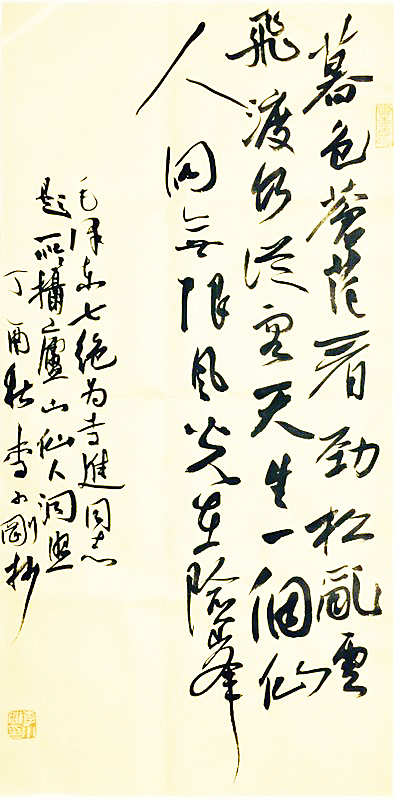 暮色蒼茫看勁松亂雲
飛渡仍從容天生一個仙
人洞無限风光在險峯
毛泽东七绝为李進同志
題所攝廬山仙人洞照
丁酉秋李小剛抄